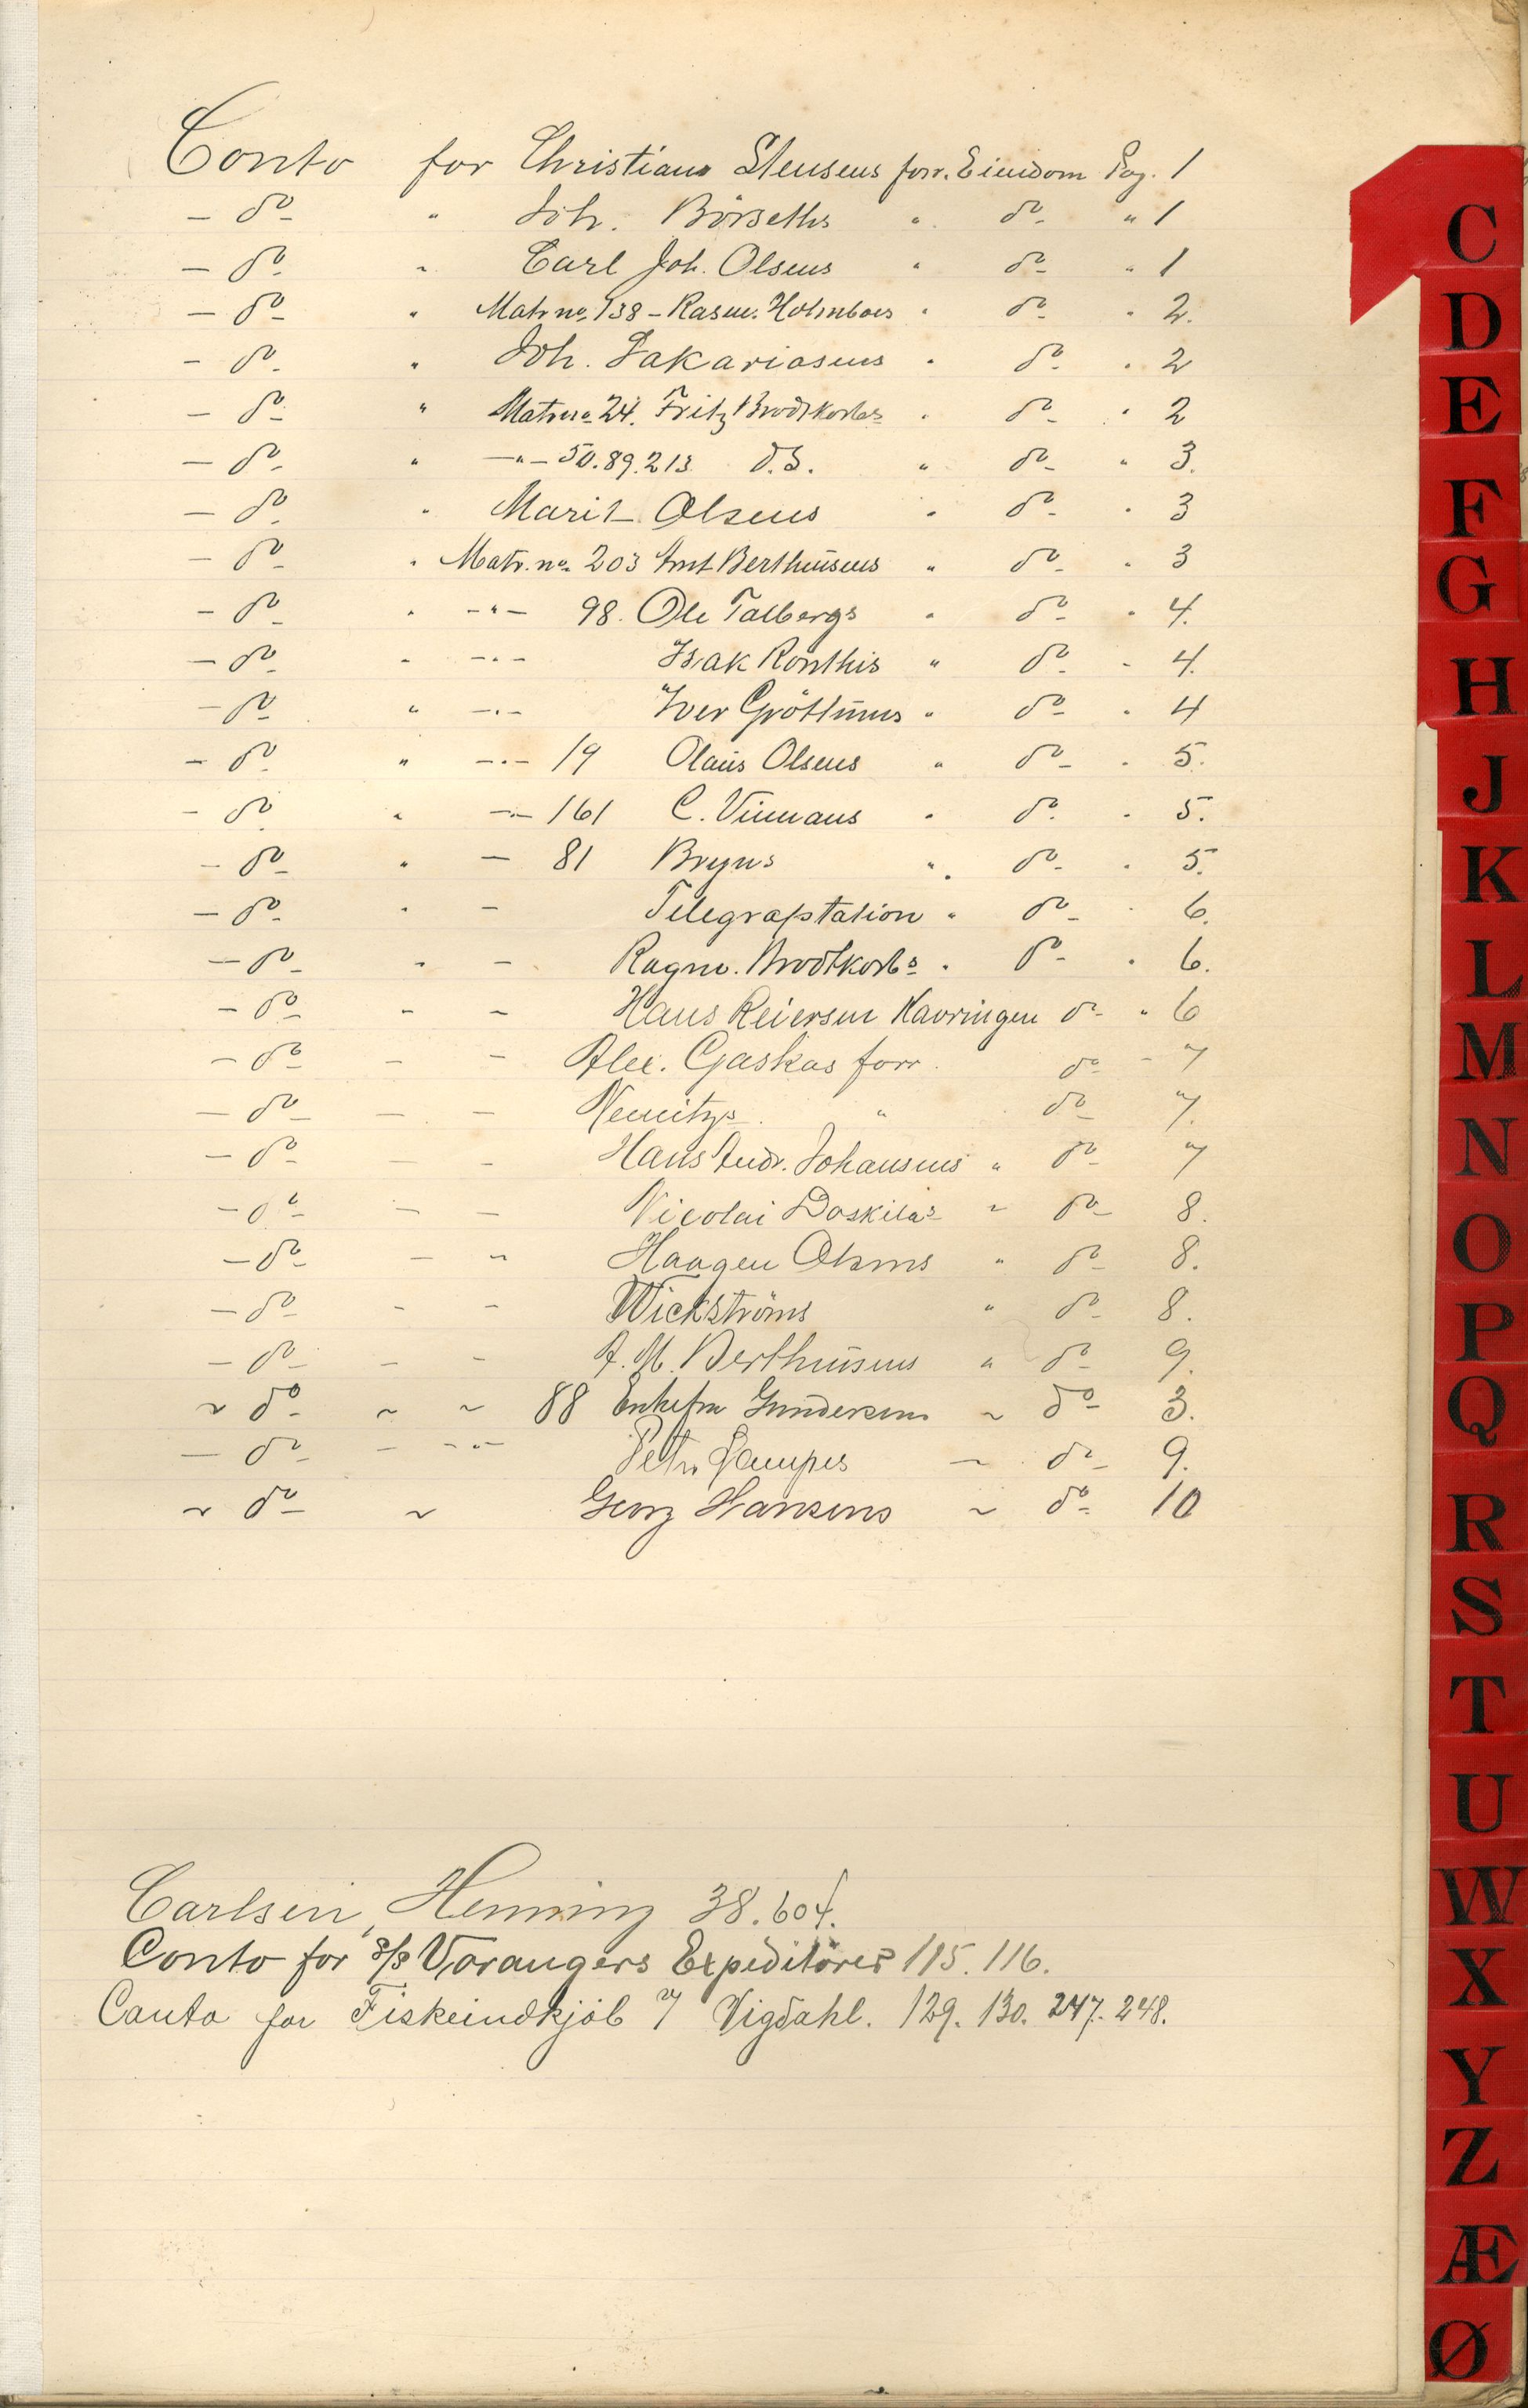 Conto for Christian Stensens forr. Eiendom Pag. 1
— do — " Joh. Börseths " do — " 1
— do — " Carl Joh. Olsens " do — " 1
— do — " Matr no. 138 — Rasm. Holmboes " do — " 2.
— do — " Joh. Zakariasens " do — " 2
— do — " Matr no 24. Fritz Brodtkorbs " do — " 2
— do — " — " — 50. 89. 213. d.S. " do — " 3.
— do — " Marit Olsens " do — " 3
— do — " Matr. no. 203 Ant Berthüsens " do — " 3
— do — " — " — 98. Ole Talbergs " do — " 4.
— do — " — " — Isak Ronthis " do — " 4.
— do — " — " — Iver Gröttüms " do — " 4
— do — " — " — 19 Olaüs Olsens " do — " 5.
— do — " — " — 161 C. " do — " 5.
— do — " — 81 Bryns " do — " 5.
— do — " — Telegrafstation " do — " 6.
— do — " — Ragnv. Brodtkorbs " do — " 6.
— do — " — Hans Reiersen Kavringen do — " 6
— do — — — Alex. Gaskas forr. do — " 7
— do — — — " do — 7.
— do — — — Hans Andr. Johansens " do — 7
— do — — — Nicolai " do — 8.
— do — — " Haagen Olsens " do — 8.
— do — — — Wickströms " do — 8.
— do — — — A. M. Berthüsens " do — 9.
~ do — ~ ~ 88 Enkefru Gundersens ~ do — 3.
— do — — — " — Petr. — do — 9.
~ do — ~ Georg Hansens ~ do — 10
Carlsen, Henning 38. 604.
Conto for s/s Varangers Expeditörer 115. 116.
Conto for Fiskeindkjöb v/ Vigdahl. 129. 130. 247. 248.
C
D
E
F
G
H
J
K
L
M
N
O
P
Q
R
S
T
U
W
X
Y
Z
Æ
Ø